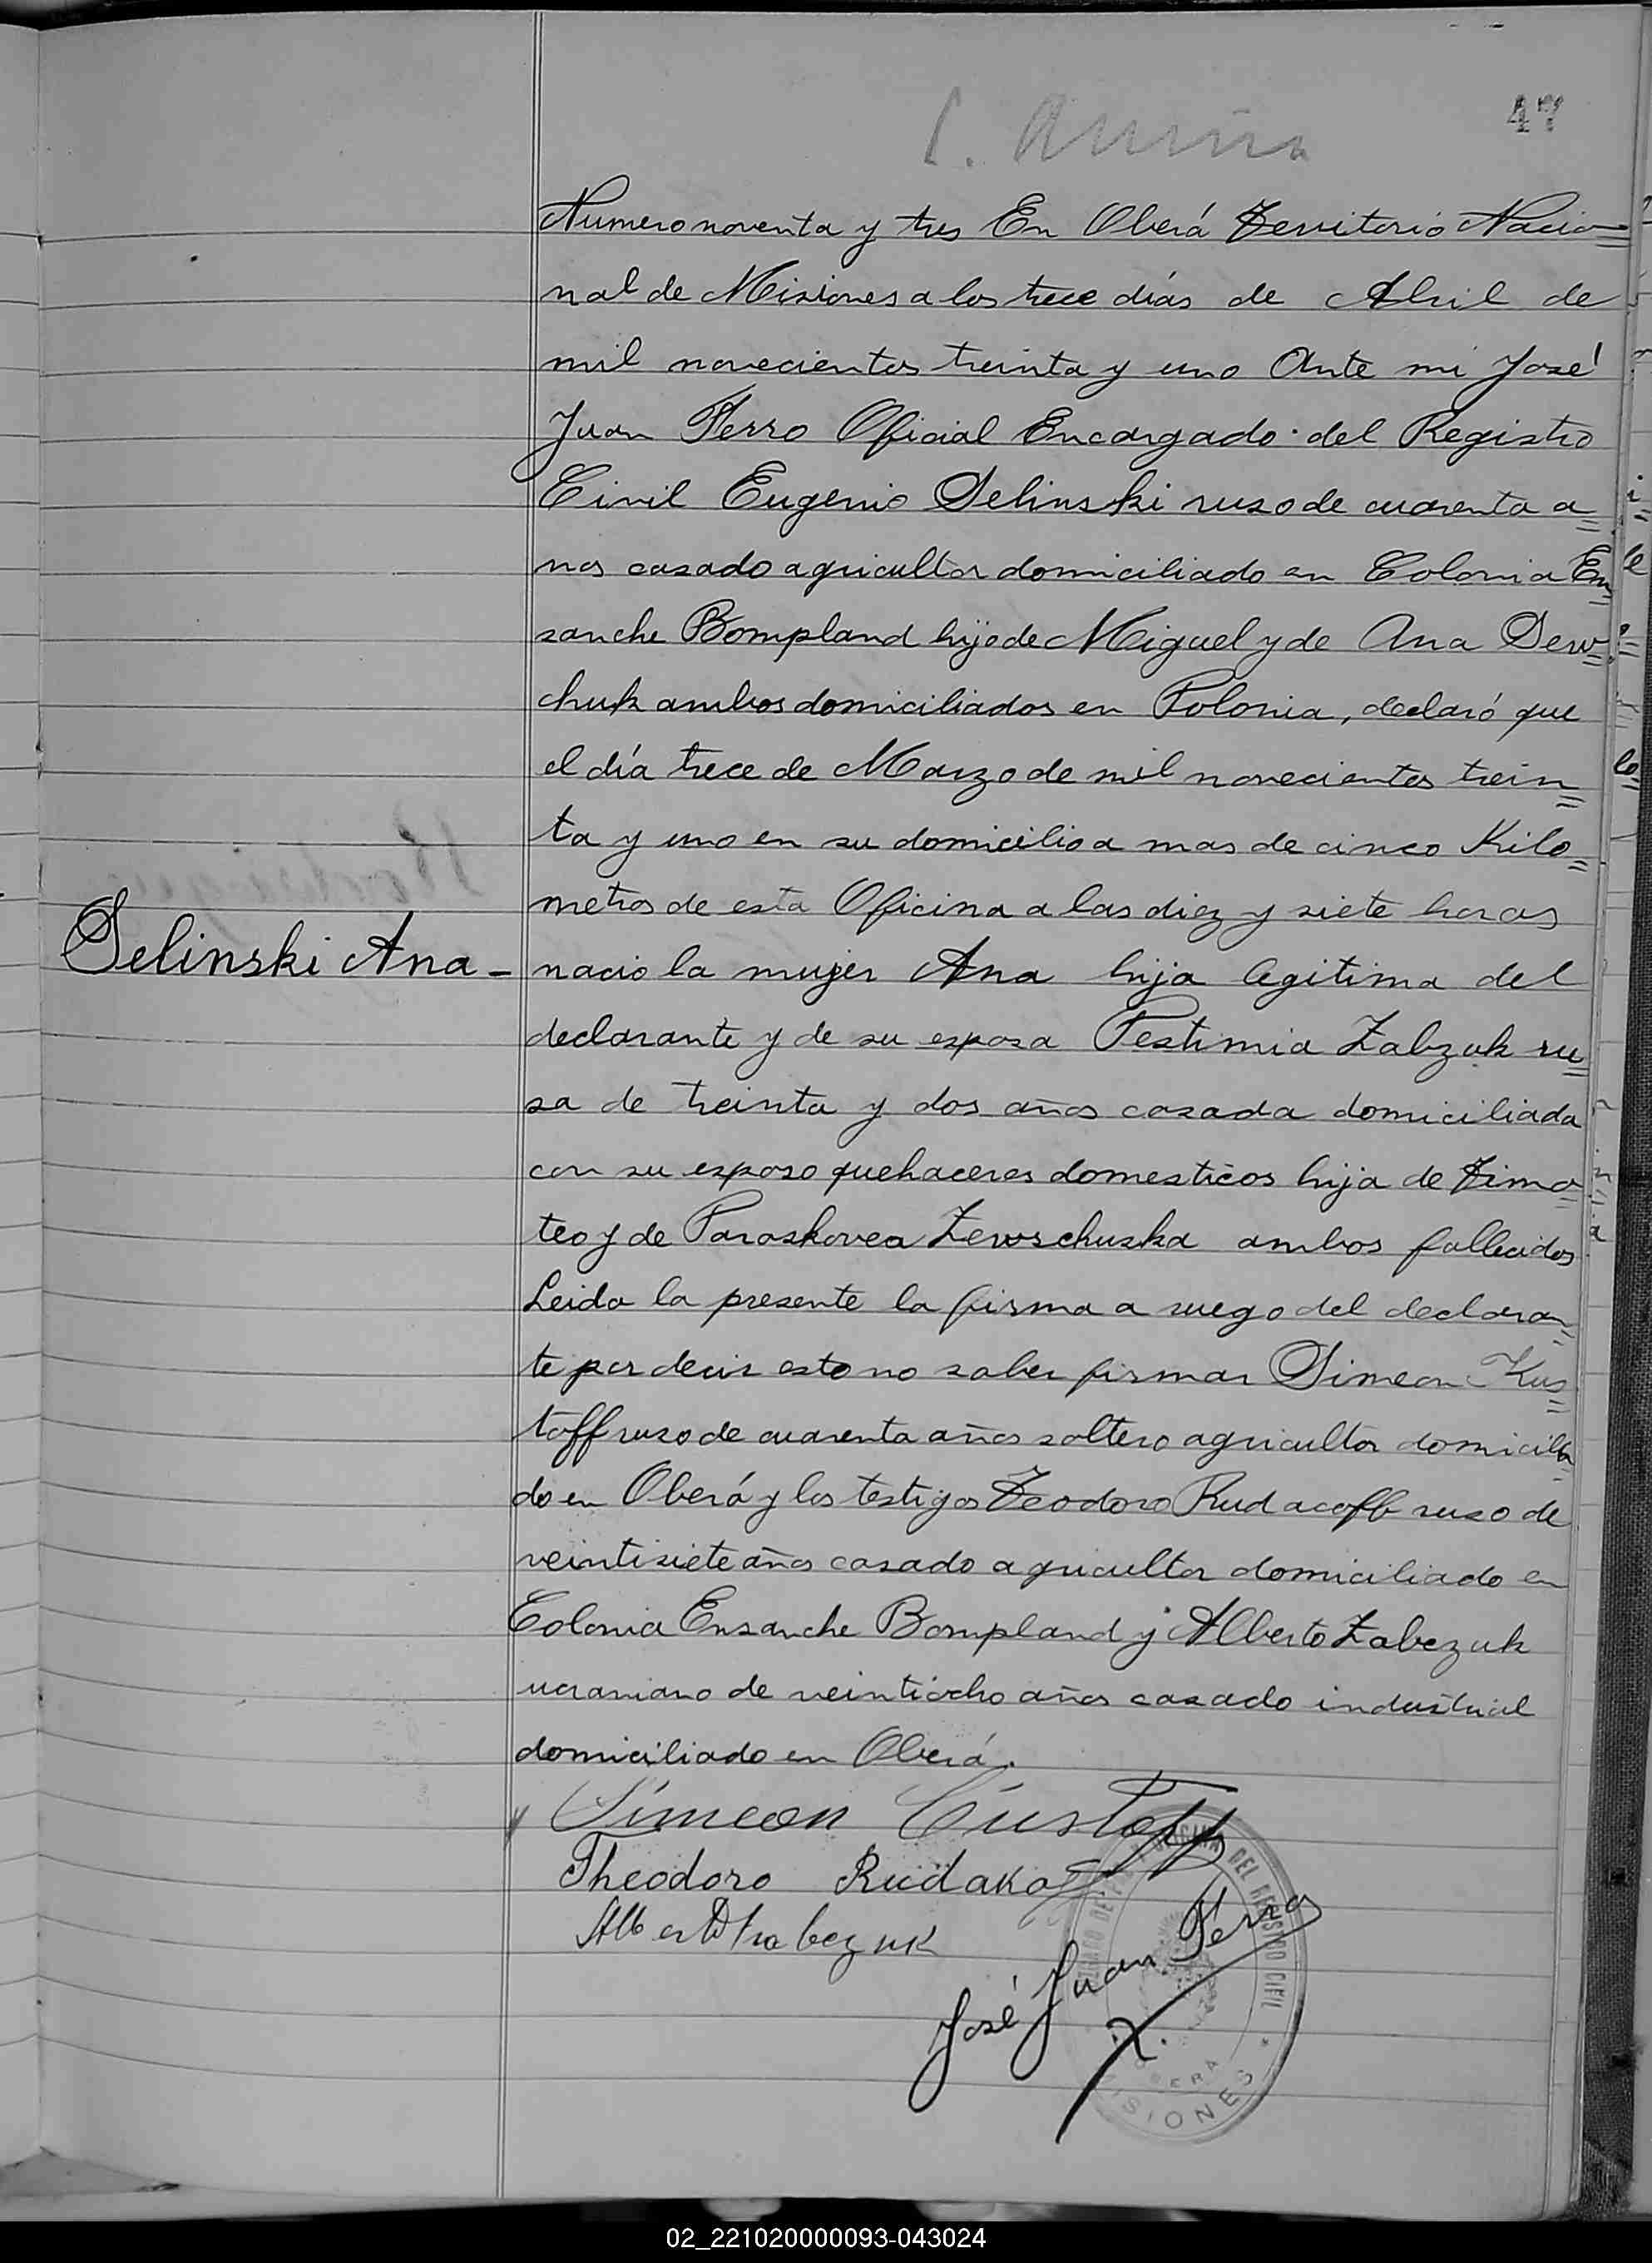 47
Numero noventa y tres En Oberá Territorio Nacio=
nal de Misiones a los trece días de Abril de
mil novecientos treinta y uno Ante mi José
Juan Ferro Oficial Encargado del Registro
Civil Eugenio Selinski ruso de cuarenta a=
nos casado agricultor domiciliado en Colonia En=
sanche Bompland hijo de Miguel y de Ana Sew=
chuk ambos domiciliados en Polonia, declaró que
el día trece de Marzo de mil novecientos trein=
ta y uno en su domicilio a mas de cinco Kilo=
metros de esta Oficina a las diez y siete horas
Selinski Ana - nacio la mujer Ana hija legitima del
declarante y de su esposa Festimia Zabzuk ru=
sa de treinta y dos años casada domiciliada
con su esposo quehaceres domesticos hija de Timo=
teo y de Paraskovea Zewschuska ambos fallecidos
Leida la presente la firma a ruego del declaran=
te por decir esto no saber firmar Simeon Kus=
toff ruso de cuarenta años soltero agricultor domicilia=
do en Oberá y los testigos Teodoro Rudacoff ruso de
veintisiete años casado agricultor domiciliado en
Colonia Ensanche Bompland y Alberto Zabczuk
ucraniano de veintiocho años casado industrial
domiciliado en Oberá.
Simeon Custoff
Theodoro Rudakoff
José Juan Ferro
DEL REGISTRO CIVIL
OBERA
MISIONES
02_221020000093-043024